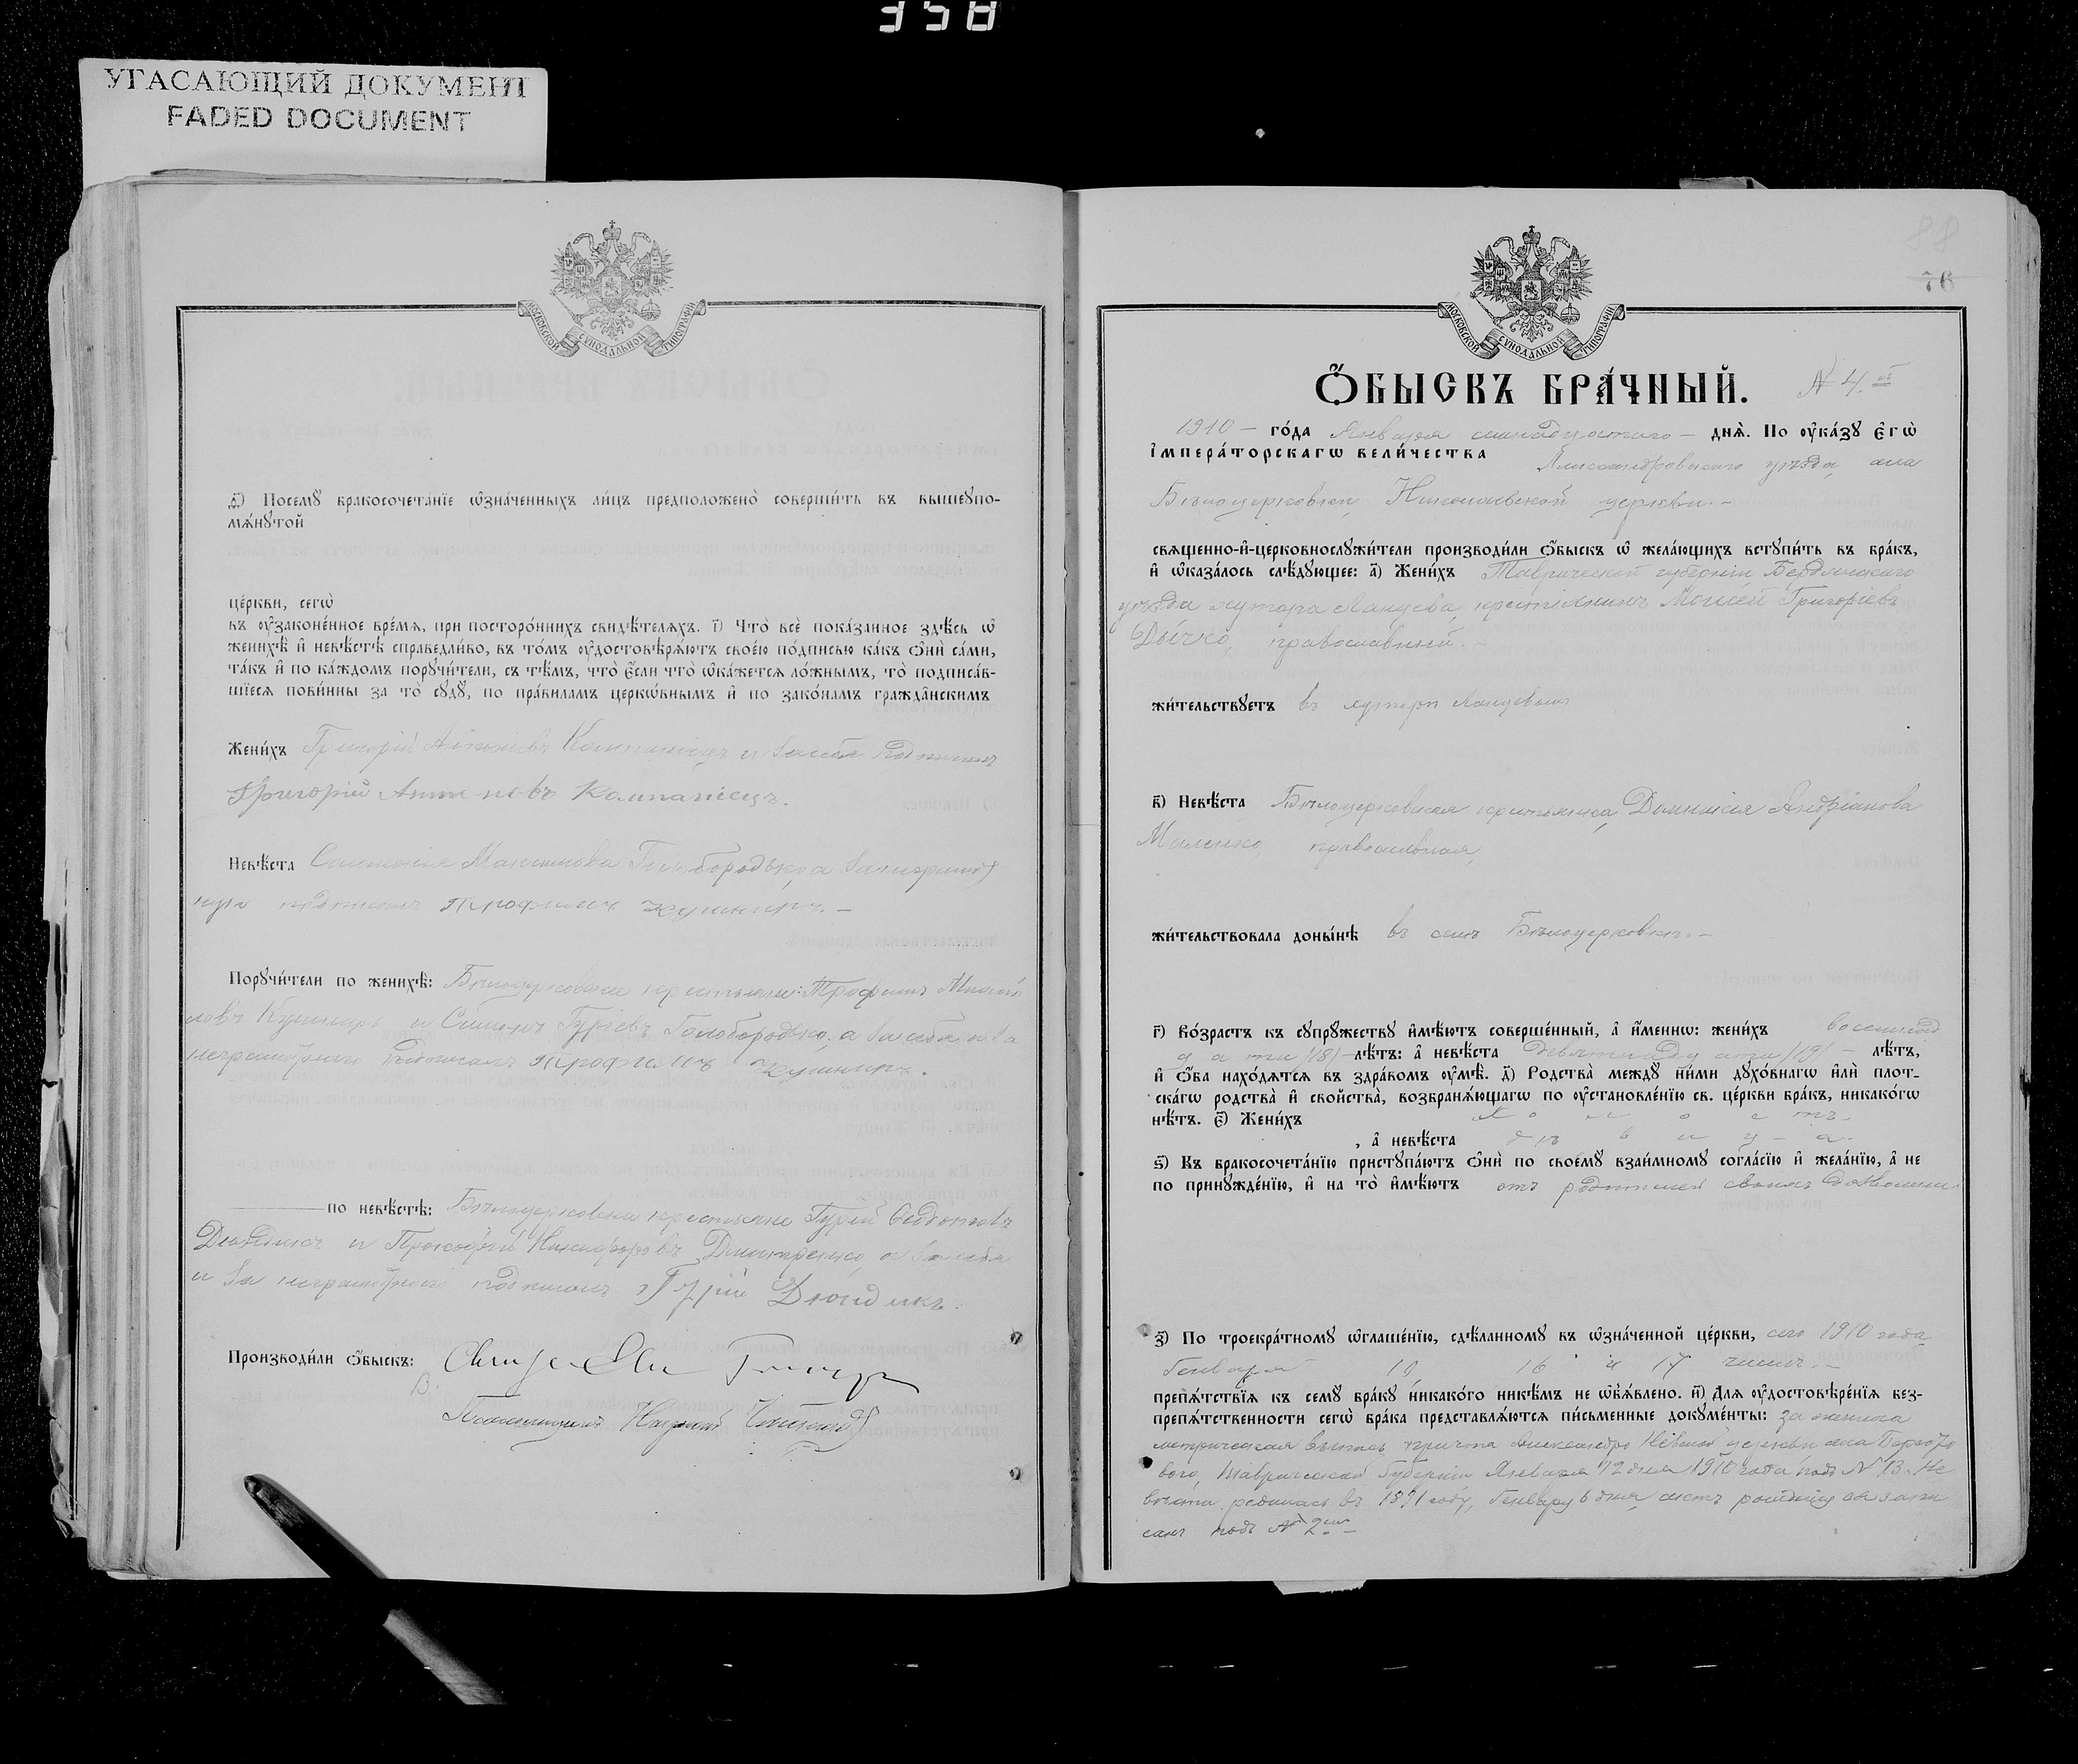 358
УГАСАЮЩИЙ ДОКУМЕНТ
FADED DOCUMENT
МОСКОВСКОЙ СѴНОДАЛЬНОЙ ТИПОГРАФІИ
Ѳ҃) Посемꙋ̀ бракосочета́нїе ѡ҆зна́ченныхъ ли́цъ предположено̀ соверши́ть въ вышеꙋпо-
мѧ́нꙋтой
це́ркви, сегѡ̀
въ ᲂу҆зако́ненное вре́мѧ, при посторо́ннихъ свидѣ́телѧхъ. І҃) Что̀ всѐ пока́занное здѣ́сь ѡ҆
женихѣ̀ и҆ невѣ́стѣ справедли́во, въ то́мъ ᲂу҆достовѣрѧ́ютъ свое́ю по́дписью ка́къ ѻ҆нѝ са́ми,
та́къ и҆ по ка́ждомъ порꙋчи́тели, съ тѣ́мъ, что̀ є҆́сли что̀ ѡ҆ка́жетсѧ ло́жнымъ, то̀ подписа́в-
шїесѧ пови́нны за то̀ сꙋдꙋ̀, по пра́виламъ церко́внымъ и҆ по зако́намъ гражда́нскимъ
Жени́хъ Григорій Антоновъ Компаніецъ и за себя подписался
Григорій Антоновъ Компаніецъ.
Невѣ́ста Соломонія Максимова Голобородько, а за неграмот
ную подписался Трофимъ Кушниръ.
Порꙋчи́тели по женихѣ̀: Бѣлоцерковскіе крестьяне: Трофимъ
ловъ Кушниръ и Симеонъ Гуріевъ Голобородько, а за себя и за
неграмотнаго подписался Трофимъ Кушниръ.
по невѣ́стѣ: Бѣлоцерковскіе крестьяне Гурій
и Прокофій Никифоровъ Дмитренко, а за себя
и за неграмотнаго подписался Гурій
Производи́ли ѻ҆́быскъ:
Псаломщикъ
88
76
МОСКОВСКОЙ СѴНОДАЛЬНОЙ ТИПОГРАФІИ
Ѻ҆́БЫСКЪ БРА́ЧНЫЙ. № 4.й
1910 – го́да Января семнадцатаго – днѧ̀. По ᲂу҆ка́зꙋ Є҆гѡ̀
І҆мпера́торскагѡ вели́чества Александровскаго уѣзда, села
Бѣлоцерковки Николаевской церкви. –
свѧще́нно-и҆-церковнослꙋжи́тели производи́ли ѻ҆́быскъ ѡ҆ жела́ющихъ встꙋпи́ть въ бра́къ,
и҆ ѡ҆каза́лось слѣ́дꙋющее: А҃) Жени́хъ Таврической губерніи Бердянскаго
уѣзда хутора Ланцева крестьянинъ Моисей Григоріевъ
Дычко, православный. –
жи́тельствꙋетъ въ хуторѣ Ланцевомъ
В҃) Невѣ́ста Бѣлоцерковская крестьянка Домникія Андріанова
Маленко, православная,
жи́тельствовала доны́нѣ въ селѣ Бѣлоцерковкѣ. –
Г҃) Во́зрастъ къ сꙋпрꙋ́жествꙋ и҆мѣ́ютъ соверше́нный, а҆ и҆́меннѡ: жени́хъ восемнад
цати /18/ – лѣ́тъ: а҆ невѣ́ста девятнадцати /19/ – лѣ́тъ,
и҆ ѻ҆́ба нахо́дѧтсѧ въ здра́вомъ ᲂу҆мѣ̀. Д҃) Родства̀ междꙋ̀ ни́ми дꙋхо́внагѡ и҆лѝ плот-
ска́гѡ родства̀ и҆ сво́йства, возбранѧ́ющагѡ по ᲂу҆становле́нїю св. це́ркви бра́къ, никако́гѡ
нѣ́тъ. Є҃) Жени́хъ холостъ.
, а҆ невѣ́ста дѣвица.
Ѕ҃) Къ бракосочета́нїю пристꙋпа́ютъ ѻ҆нѝ по своемꙋ̀ взаи́мномꙋ согла́сїю и҆ жела́нїю, а҆ не
по принꙋжде́нїю, и҆ на то̀ и҆мѣ́ютъ отъ родителей своихъ дозволеніе
З҃) По троекра́тномꙋ ѡ҆глаше́нїю, сдѣ́ланномꙋ въ ѡ҆зна́ченной це́ркви, сего 1910 года
Генваря 10, 16 и 17 чиселъ. –
препѧ́тствїѧ къ семꙋ̀ бра́кꙋ никако́гѡ никѣ́мъ не ѡ҆б̾ѧ́влено. И҃) Для ᲂу҆достовѣре́нїѧ без-
препѧ́тственности сегѡ̀ бра́ка представлѧ́ютсѧ пи́сьменные докꙋме́нты: за жениха
метрическая выпись причта Александро Невской церкви села
Таврической Губерніи Января 12 дня 1910 года подъ № 13. Не
вѣста родилась въ 1891 году, Генваря 6 дня,
санъ подъ № 2